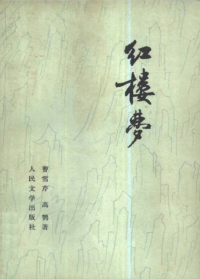 红楼梦
曹雪芹 高鹗著
人民文学出版社